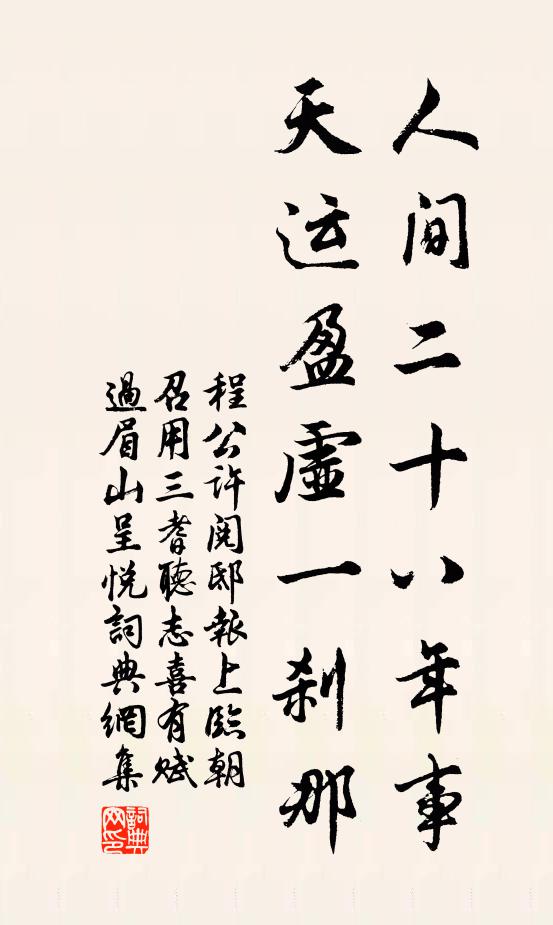 人间二十八年事
天运盈虚一刹那
程公许阅邸報上臨朝
召用三耆聽志喜有赋
過眉山呈悦詞典網集
詞典网印